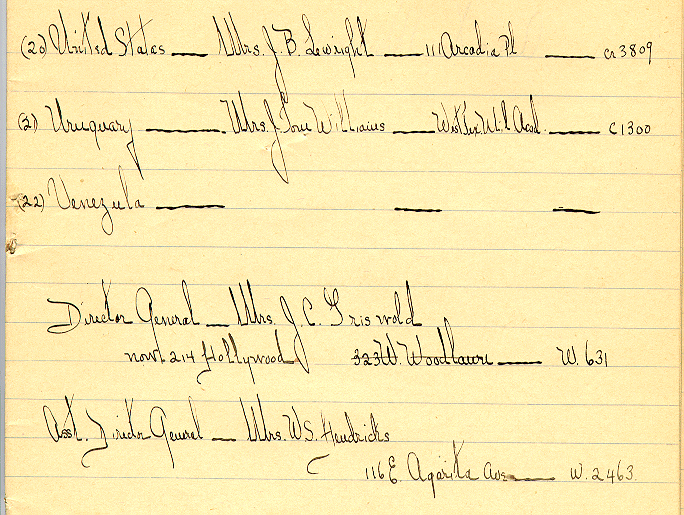 (20) United States — Mrs. J. B. Lewright — 111 Arcadia Pl — Cr 3809
(21) Uruguary — Mrs. J. Tom Williams — West Tex Mil. Acad. — C 1300
(22) Venezula — — —
Director General — Mrs. J. C. Griswold
now 214 Hollywood 323 W. Woodlawn — W. 631
Asst. Director General — Mrs. W. S. Hendricks
116 E. Agarita Ave — W. 2463